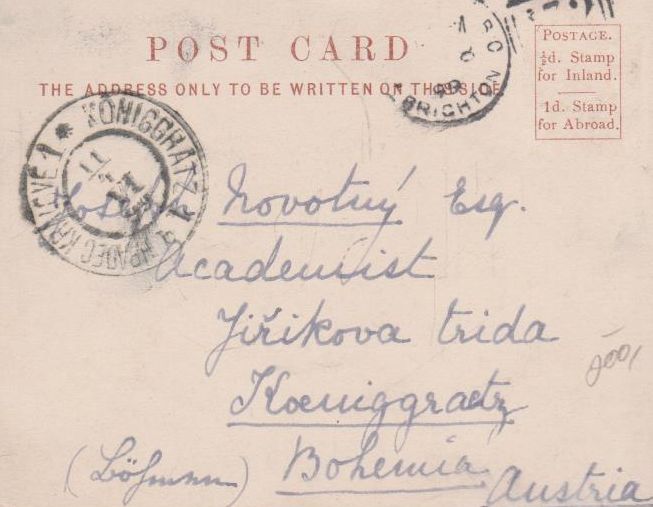 POST CARD
THE ADDRESS ONLY TO BE WRITTEN ON THIS SIDE
POSTAGE.
½d. Stamp
for Inland.
1d. Stamp
for Abroad.
BRIGHTON
99
KÖNIGGRÄTZ 1
HRADEC KRÁLOVÉ 1
11
VI
Novotný Esq.
Academist
Jiřikova trida
Koeniggraetz
(Böhmen) Bohemia
Austria